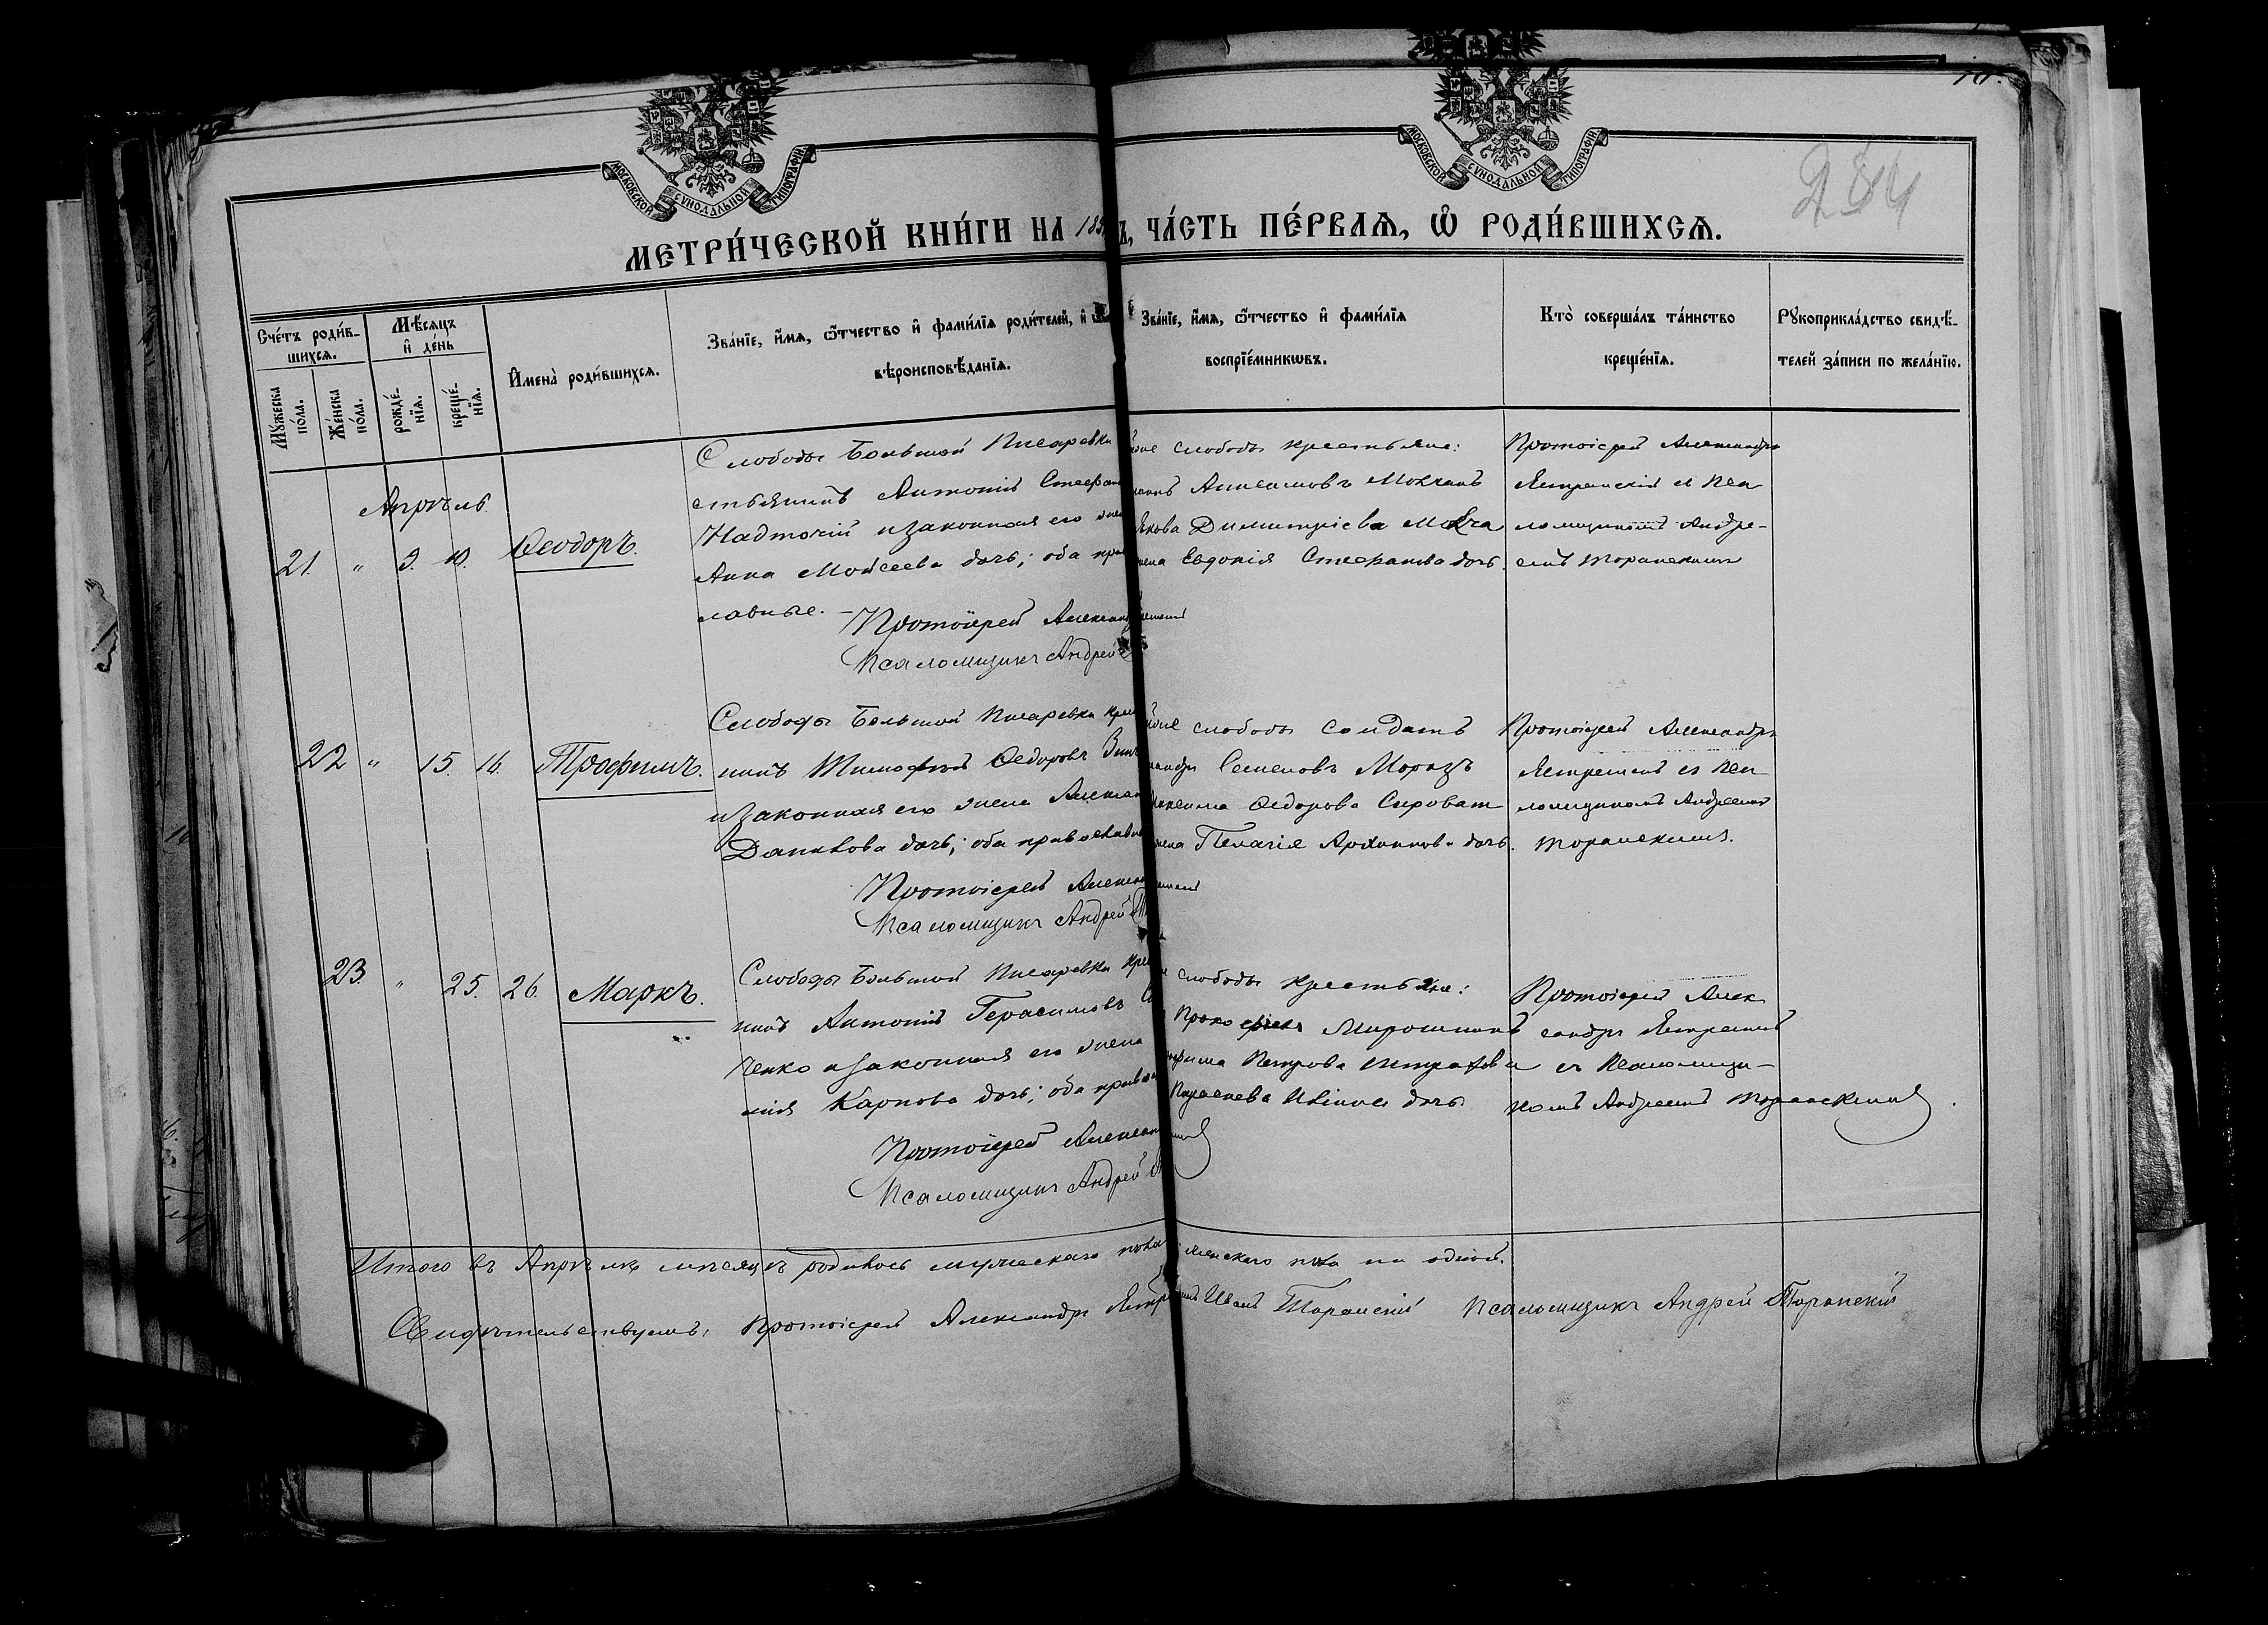 МОСКОВСКОЙ СѴНОДАЛЬНОЙ ТИПОГРАФІИ
МОСКОВСКОЙ СѴНОДАЛЬНОЙ ТИПОГРАФІИ
284
МЕТРИ́ЧЕСКОЙ КНИ́ГИ НА 18
Ъ, ЧА́СТЬ ПЕ́РВАѦ, Ѽ РОДИ́ВШИХСѦ.
Сче́тъ роди́в-
шихсѧ.
Мꙋ́жеска по́ла.
Же́нска по́ла.
Мѣ́сѧцъ и҆ де́нь
рожде́-нїѧ.
креще́-нїѧ.
И҆мена̀ роди́вшихсѧ.
Зва́нїе, и҆́мѧ, ѻ҆́тчество и҆ фами́лїѧ роди́телей, и҆
вѣроисповѣ́данїѧ.
Зва́нїе, и҆́мѧ, ѻ҆́тчество и҆ фами́лїѧ
воспрїе́мникѡвъ.
Кто̀ соверша́лъ та́инство
креще́нїѧ.
Рꙋкоприкла́дство свидѣ́-
телей за́писи по жела́нїю.
Апрѣль
21. " 9. 10. Ѳеодоръ.
Слободы Большой Писаревки
стьянинъ Антоній Стефан
Надточій и законная его жен
Анна Мойсеева дочь; оба прав
лавные. – Протоіерей Александ
Псаломщикъ Андрей
слободы крестьяне:
Анисимовъ Мовчанъ
Димитріева Мовча
Евдокія Стефанова дочь.
Протоіерей Александръ
Ястремскій съ Пса
ломщикомъ Андре-
емъ Торанскимъ
22 " 15. 16. Трофимъ.
Слободы Большой Писаревки крес
нинъ Тимофей Ѳедоровъ
и законная его жена Алексан
Данилова дочь; оба православн
Протоіерей Алексан
Псаломщикъ Андрей
слободы солдатъ
Семеновъ Морозъ
Ѳедорова Сироват
Пелагія Архипова дочь.
Протоіерей Александръ
Ястремскій съ Пса
ломщикомъ Андреемъ
Торанскимъ.
23. " 25. 26. Маркъ.
Слободы Большой Писаревки кре
нинъ Антоній Герасимовъ
ченко и законная его жена
нія Карпова дочь; оба правос
Протоіерей Алексан
Псаломщикъ Андрей
слободы крестьяне:
Мирошник
Петрова
дочь.
Протоіерей Алек
сандръ Ястремскій
съ Псаломщи-
комъ Андреемъ Торанскимъ.
Итого въ Апрѣлѣ мѣсяцѣ родилось мужескаго пола
женскаго пола ни одной.
Свидѣтельствуемъ: Протоіерей Александръ Ястре
Иванъ Торанскій Псаломщикъ Андрей Торанскій